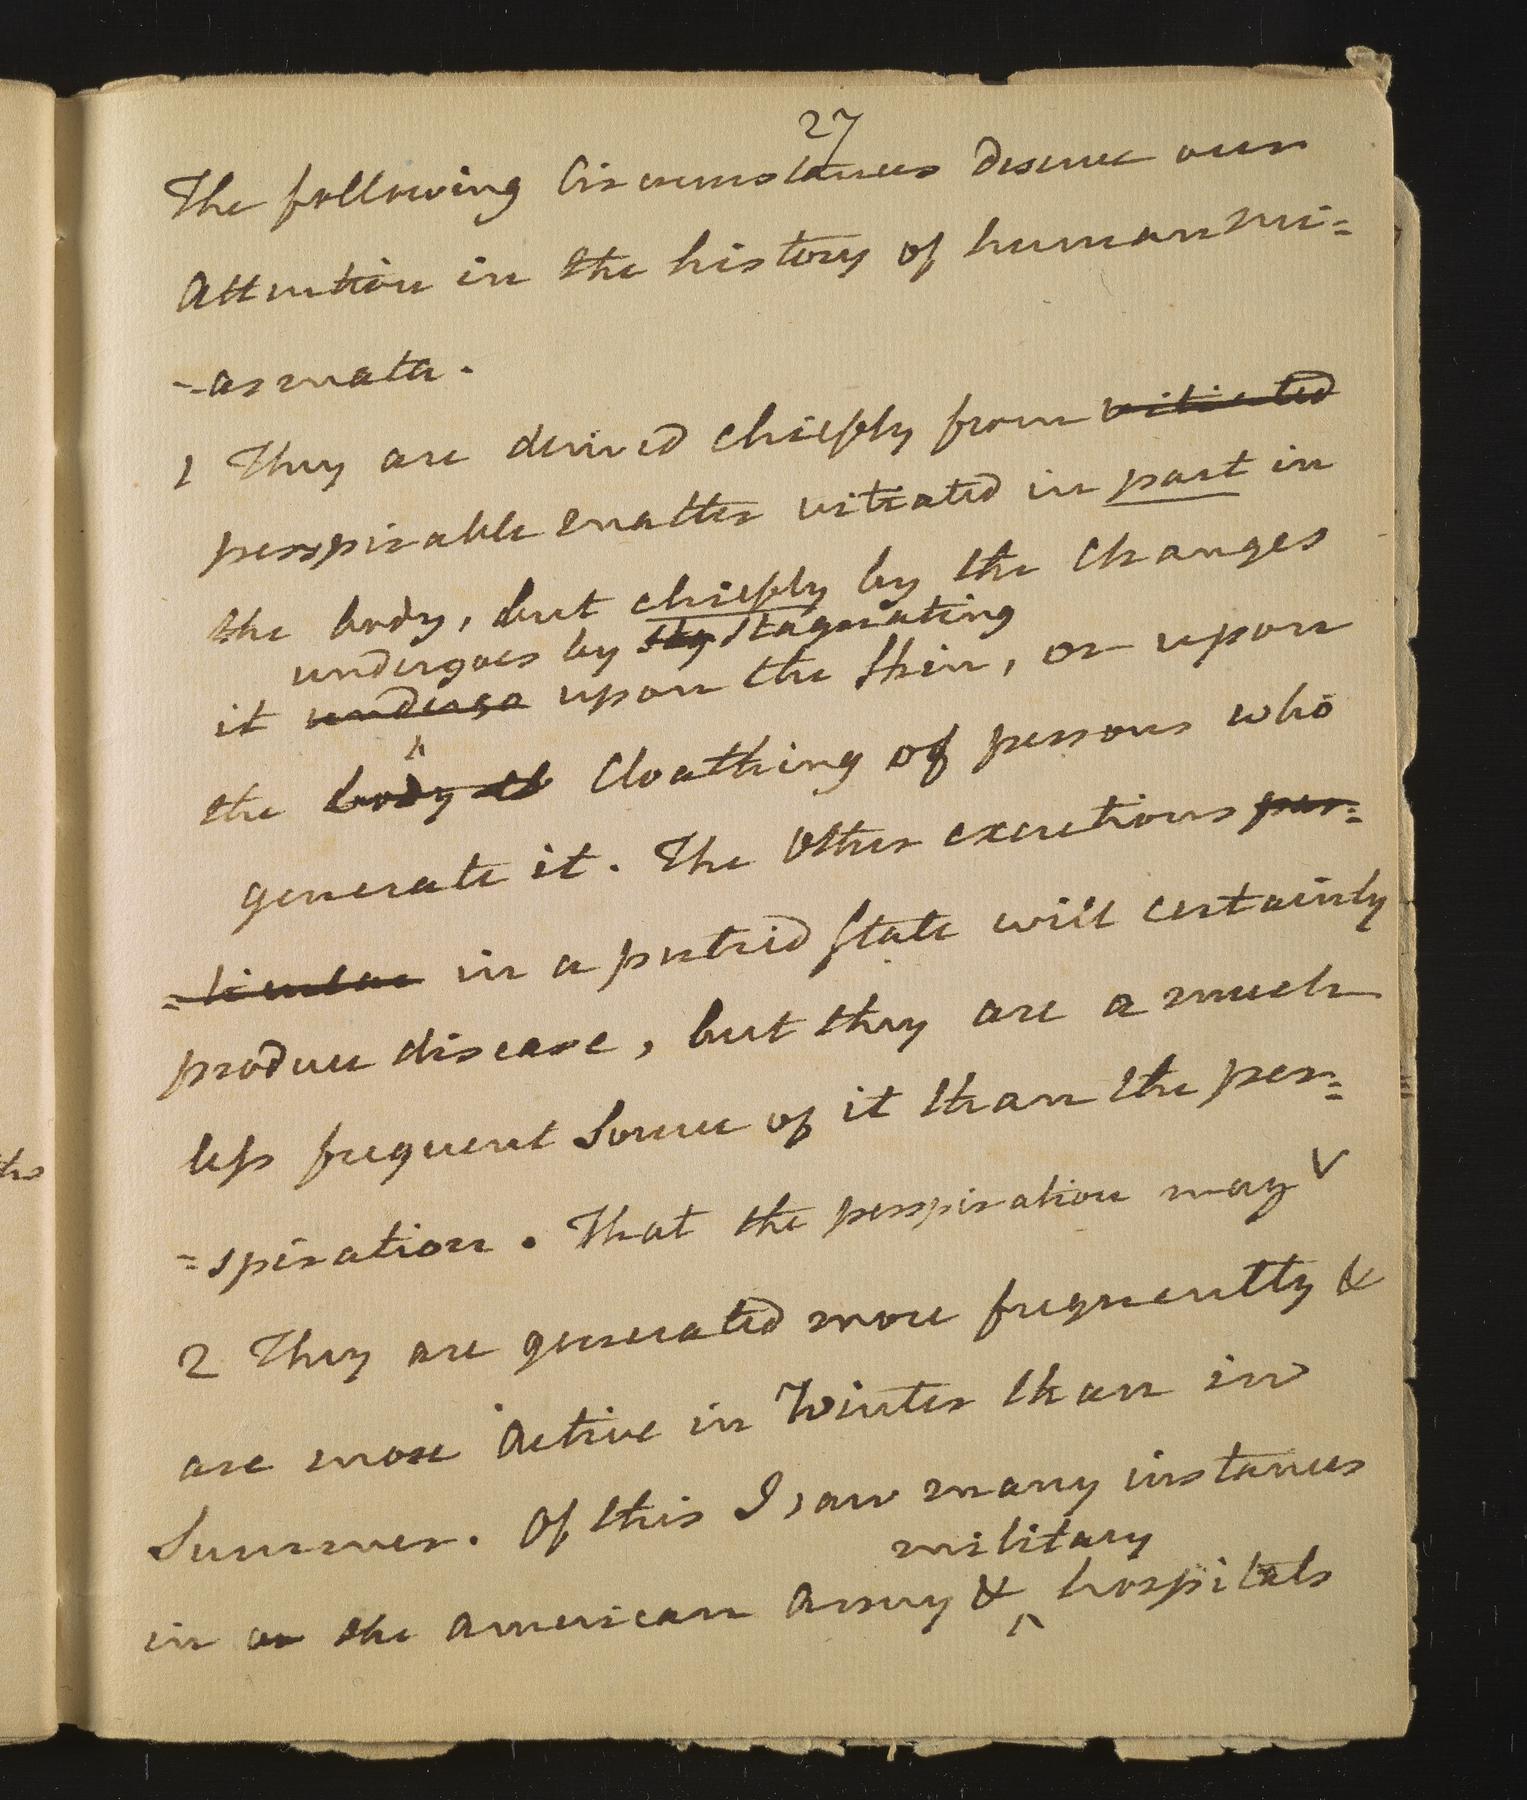 27
The following Circumstances deserve our
Attention in the history of human mi=
=asmata.
1 They are derived chiefly from vitiated
perspirable matter vitiated in part in
the body, but chiefly by the Changes
undergoes by stag stagnating
it undergo upon the skin, or upon
the body Cloathing of persons who
generate it. The Other excretions par=
=ticular in a putrid state will certainly
produce disease, but they are a much
less frequent Source of it than the per=
=spiration. That the perspiration may V
2 They are generated more frequently &
are more Active in Winter than in
Summer. Of this I saw many instances
military
in the American Army & ^ hospitals
ths